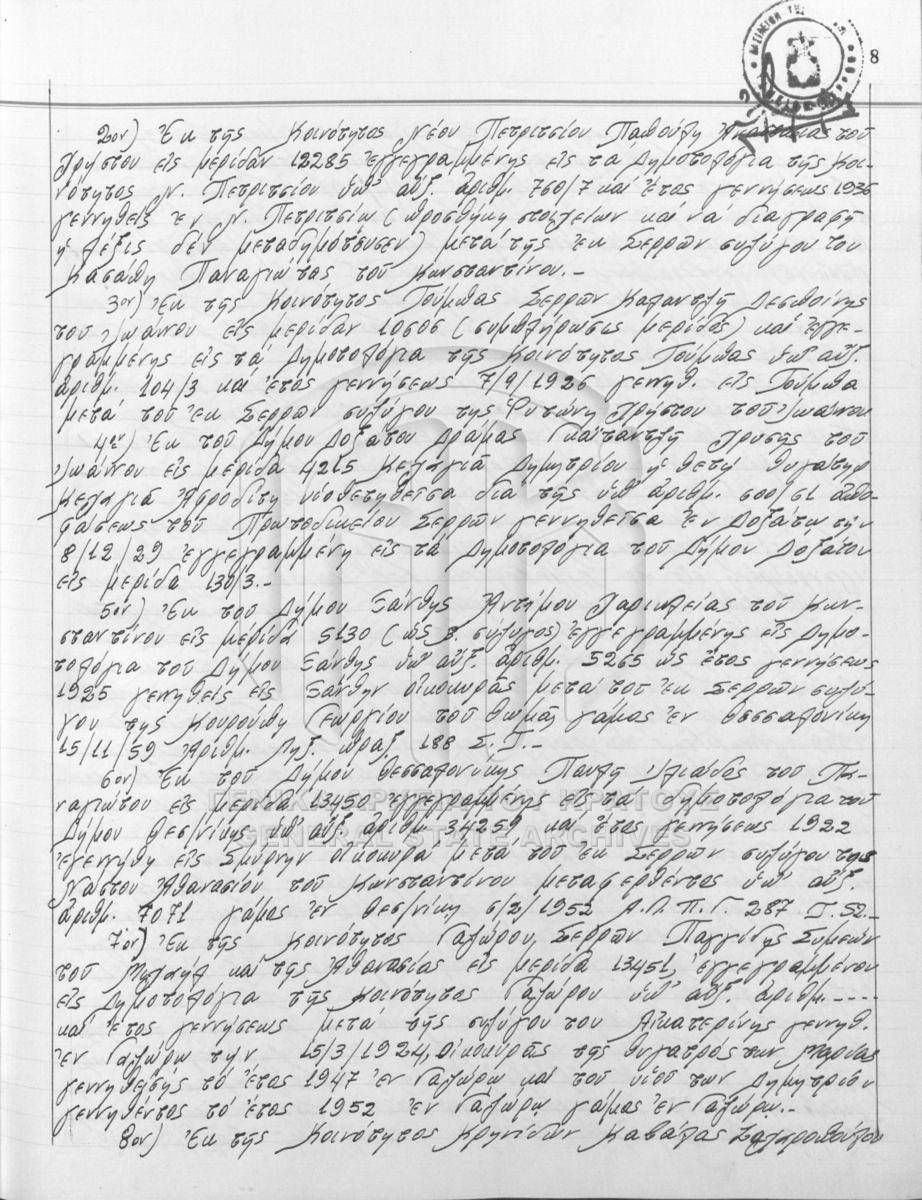 8
2ον) Ἐκ τῆς Κοινότητος Νέου Πετριτσίου Παπούλη τοῦ
Χρήστου εἰς μερίδαν 12285 ἐγγεγραμμένης εἰς τὰ Δημοτολόγια τῆς Κοι-
νότητος Ν. Πετριτσίου ὑπ' αὔξ. ἀριθμ. 760/7 καὶ ἔτος γεννήσεως 1936
γεννηθεὶς ἐν Ν. Πετριτσίῳ (προσθήκη στοιχείων καὶ νὰ διαγραφῇ
ἡ λέξις δὲν μεταδημότευσεν) μετὰ τῆς ἐκ Σερρῶν συζύγου του
Κασάπη Παναγιώτας τοῦ Κωνσταντίνου.-
3ον) Ἐκ τῆς Κοινότητος Τούμπας Σερρῶν Καλαντζῆ Δεσποίνης
τοῦ Ἰωάννου εἰς μερίδαν 10505 (συμπλήρωσις μερίδος) καὶ ἐγγε-
γραμμένης εἰς τὰ Δημοτολόγια τῆς Κοινότητος Τούμπας ὑπ' αὔξ.
ἀριθμ. 104/3 καὶ ἔτος γεννήσεως 7/9/1926 γεννηθ. εἰς Τούμπα
μετὰ τοῦ ἐκ Σερρῶν συζύγου της Φυτώνη Χρήστου τοῦ Ἰωάννου
4ον) Ἐκ τοῦ Δήμου Δοξάτου Δράμας Γκαϊτατζῆ Χρυσῆς τοῦ
Ἰωάννου εἰς μερίδα 4215 Κελαγιᾶ Δημητρίου ἡ θετὴ θυγάτηρ
Κελαγιᾶ Ἀφροδίτη υἱοθετηθεῖσα διὰ τῆς ὑπ' ἀριθμ. 500/51 ἀπο-
φάσεως τοῦ Πρωτοδικείου Σερρῶν γεννηθεῖσα ἐν Δοξάτῳ τὴν
8/12/29 ἐγγεγραμμένη εἰς τὰ Δημοτολόγια τοῦ Δήμου Δοξάτου
εἰς μερίδα 130/3.-
5ον) Ἐκ τοῦ Δήμου Ξάνθης Ἀντήμου Χαρικλείας τοῦ Κων-
σταντίνου εἰς μερίδα 5130 (ὡς β. σύζυγος) ἐγγεγραμμένης εἰς Δημο-
τολόγια τοῦ Δήμου Ξάνθης ὑπ' αὔξ. ἀριθμ. 5265 ὡς ἔτος γεννήσεως
1925 γεννηθεὶς εἰς Ξάνθην οἰκοκυρᾶς μετὰ τοῦ ἐκ Σερρῶν συζύ-
γου της Κουρούπη Γεωργίου τοῦ Θωμᾶ γάμος ἐν Θεσσαλονίκῃ
15/11/59 Ἀριθμ. Ληξ. πραξ. 188 Σ. Τ.-
6ον) Ἐκ τοῦ Δήμου Θεσσαλονίκης Παυλῆ Ἰλιάδος τοῦ Πα-
ναγιώτου εἰς μερίδα 13450 ἐγγεγραμμένης εἰς τὰ δημοτολόγια τοῦ
Δήμου Θεσ/νίκης ὑπ' αὔξ. ἀριθμ. 34259 καὶ ἔτος γεννήσεως 1922
ἐγεννήθη εἰς Σμύρνην οἰκοκυρὰ μετὰ τοῦ ἐκ Σερρῶν συζύγου της
Νάστου Ἀθανασίου τοῦ Κωνσταντίνου μεταφερθέντος ὑπ' αὔξ.
ἀριθμ. 7071 γάμος ἐν Θεσ/νίκῃ 5/2/1952 Α.Λ.Π.Γ. 287 Τ.52.-
7ον) Ἐκ τῆς Κοινότητος Γαζώρου, Σερρῶν Παγγίδης Συμεὼν
τοῦ Μιχαὴλ καὶ τῆς Ἀθανασίας εἰς μερίδα 13451, ἐγγεγραμμένου
εἰς Δημοτολόγια τῆς Κοινότητος Γαζώρου ὑπ' αὔξ. ἀριθμ. ----
καὶ ἔτος γεννήσεως μετὰ τῆς συζύγου του Αἰκατερίνης γεννηθ.
ἐν Γαζώρῳ τὴν 15/3/1924, οἰκοκυρᾶς τῆς θυγατρὸς των Μαρίας
γεννηθείσης τὸ ἔτος 1947 ἐν Γαζώρῳ καὶ τοῦ υἱοῦ των Δημητρίου
γεννηθέντος τὸ ἔτος 1952 ἐν Γαζώρῳ γάμος ἐν Γαζώρῳ.-
8ον) Ἐκ τῆς Κοινότητος Κρηνίδων Καβάλας
ΓΕΝΙΚΑ ΑΡΧΕΙΑ ΤΟΥ ΚΡΑΤΟΥΣ
GENERAL STATE ARCHIVES